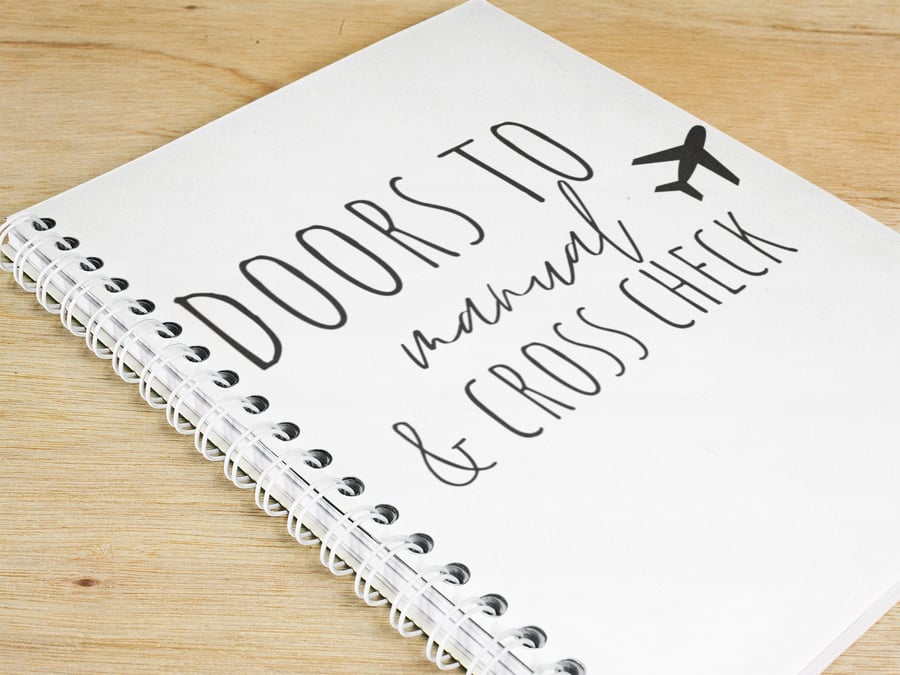 DOORS TO
manual
& CROSS CHECK